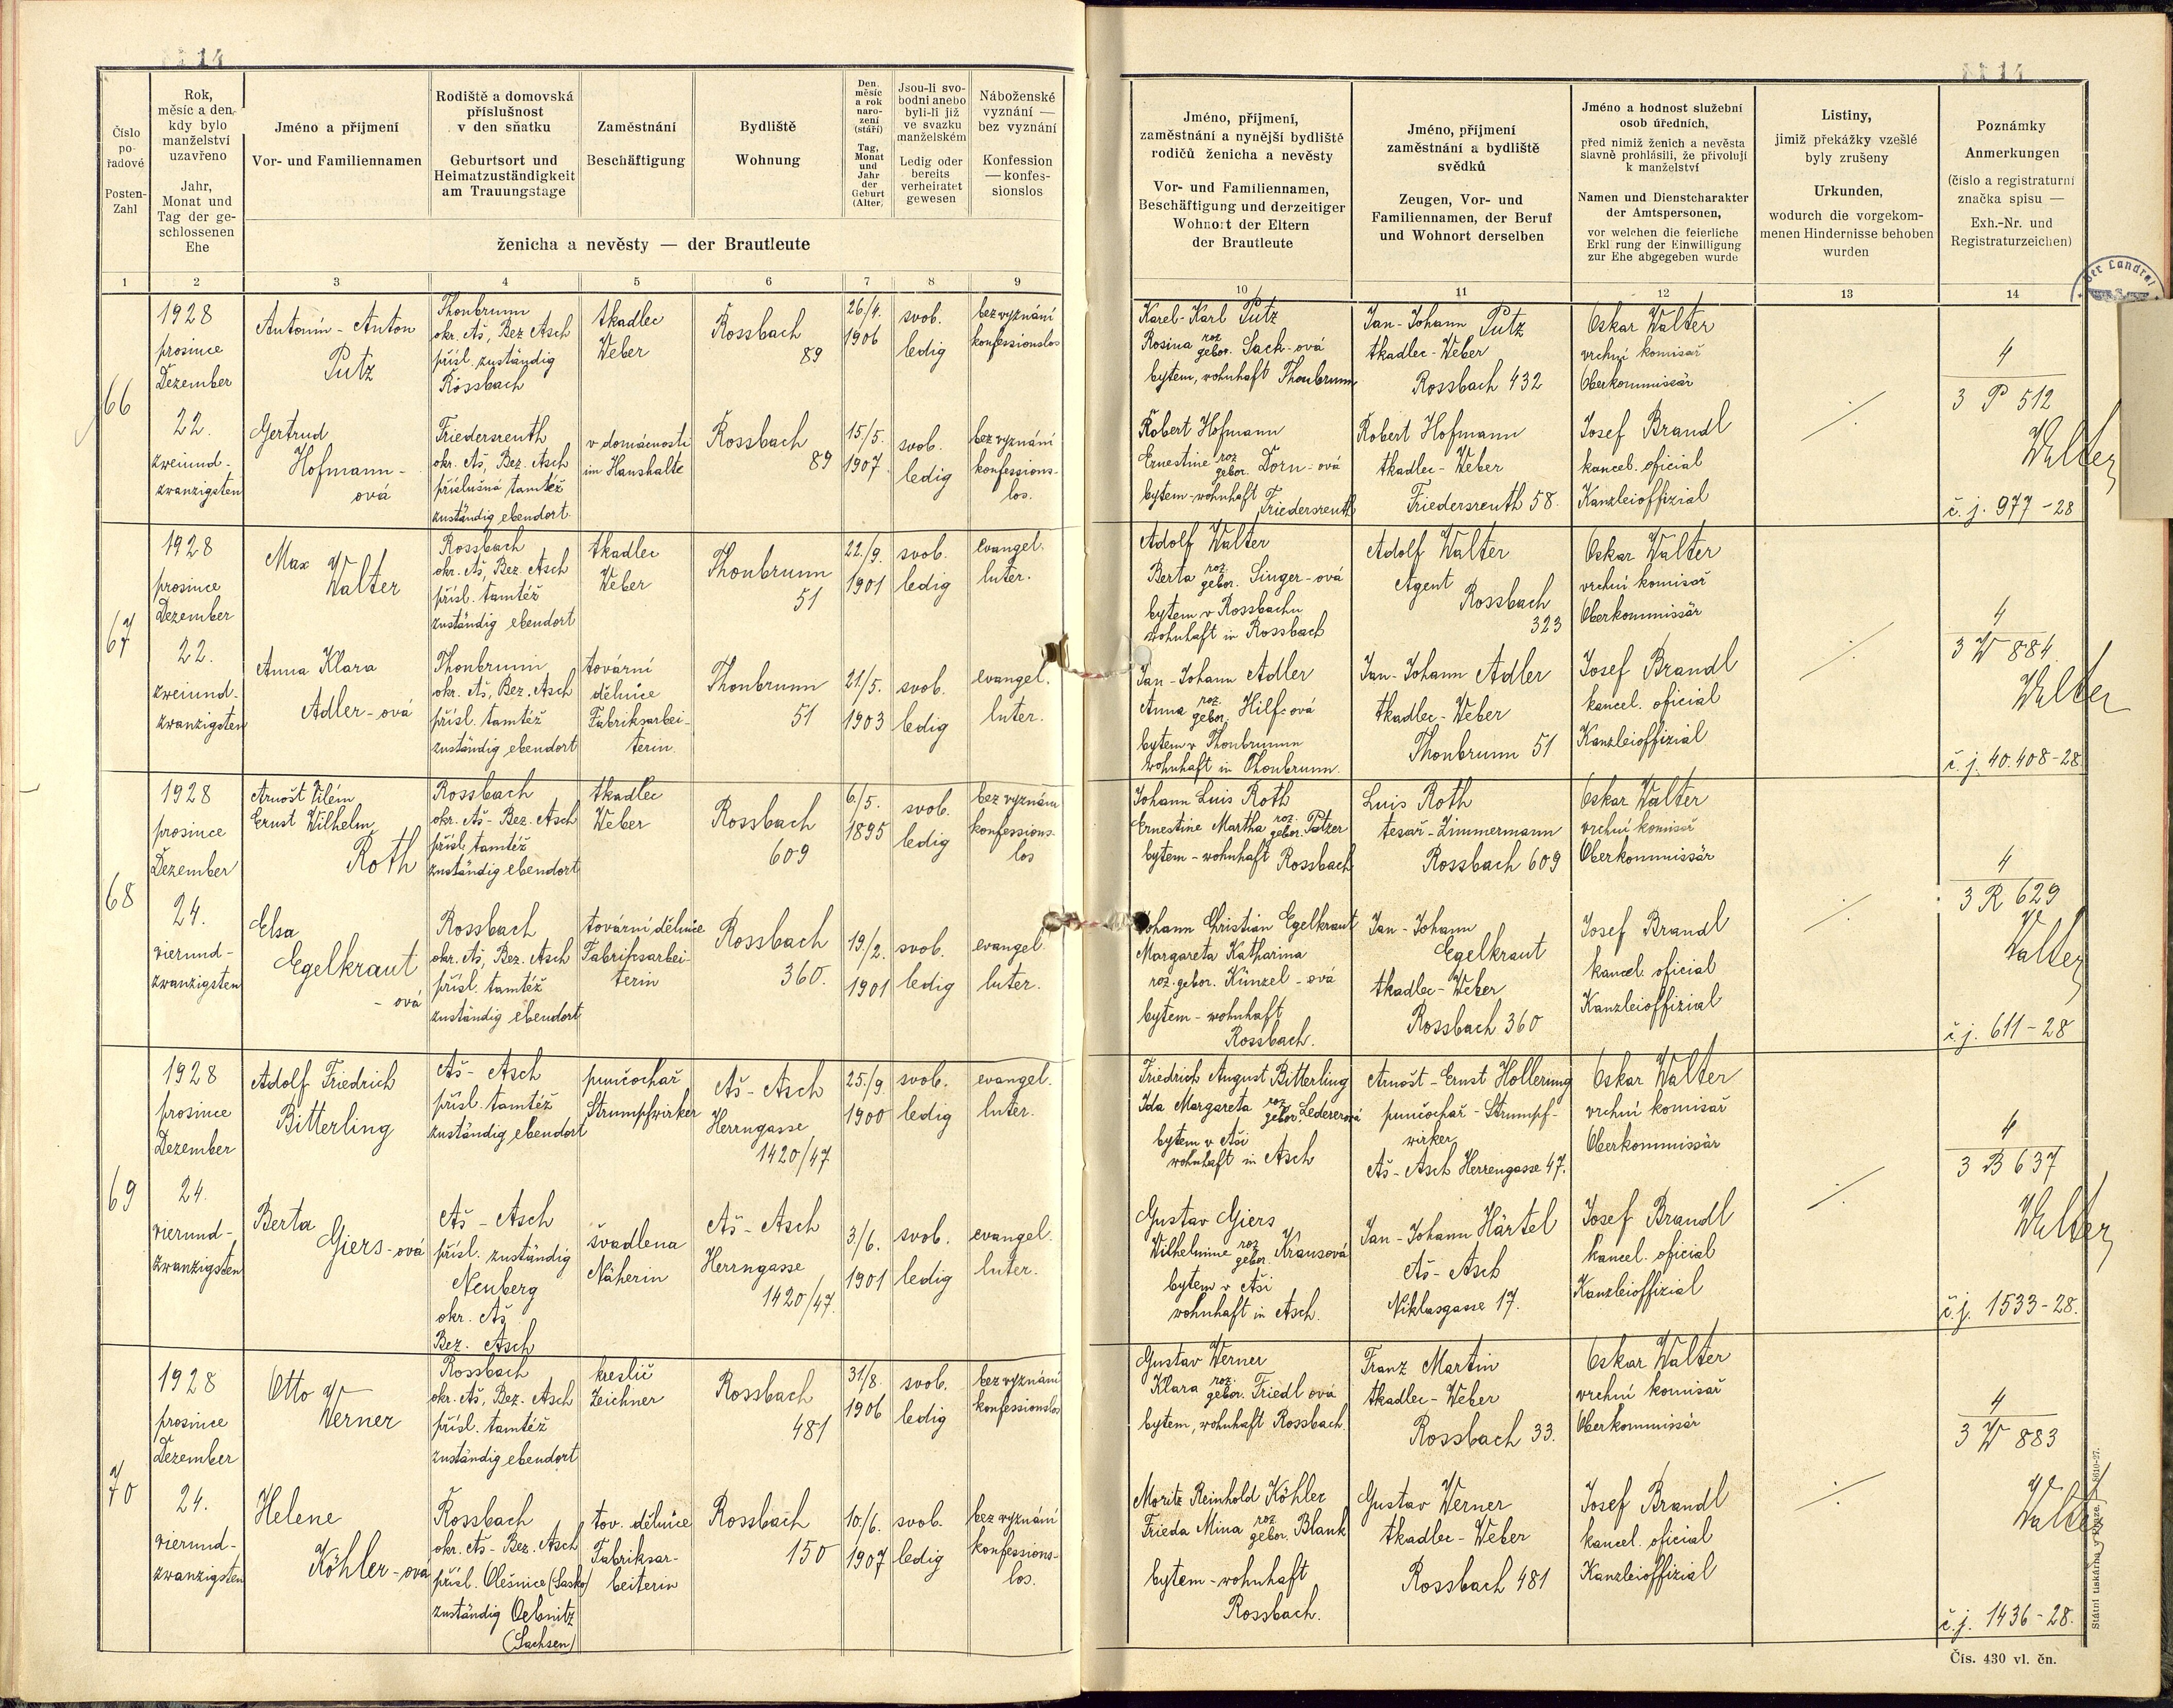 Číslo pořadové
Posten-Zahl
Rok,
měsíc a den,
kdy bylo
manželství
uzavřeno
Jahr,
Monat und
Tag der ge-
schlossenen
Ehe
Jméno a příjmení
Vor- und Familiennamen
Rodiště a domovská
příslušnost
v den sňatku
Geburtsort und
Heimatzuständigkeit
am Trauungstage
Zaměstnání
Beschäftigung
Bydliště
Wohnung
Den,
měsíc
a rok
naro-
zení
(stáří)
Tag,
Monat
und
Jahr
der
Geburt
(Alter)
Jsou-li svo-
bodni anebo
byli-li již
ve svazku
manželském
Ledig oder
bereits
verheiratet
gewesen
Náboženské
vyznání —
bez vyznání
Konfession
— konfes-
sionslos
ženicha a nevěsty — der Brautleute
Jméno, příjmení,
zaměstnání a nynější bydliště
rodičů ženicha a nevěsty
Vor- und Familiennamen,
Beschäftigung und derzeitiger
Wohnort der Eltern
der Brautleute
Jméno, příjmení
zaměstnání a bydliště
svědků
Zeugen, Vor- und
Familiennamen, der Beruf
und Wohnort derselben
Jméno a hodnost služební
osob úředních,
před nimiž ženich a nevěsta
slavně prohlásili, že přivolují
k manželství
Namen und Dienstcharakter
der Amtspersonen,
vor welchen die feierliche
Erkl rung der Einwilligung
zur Ehe abgegeben wurde
Listiny,
jimiž překážky vzešlé
byly zrušeny
Urkunden,
wodurch die vorgekom-
menen Hindernisse behoben
wurden
Poznámky
Anmerkungen
(číslo a registraturní
značka spisu —
Exh.-Nr. und
Registraturzeichen)
Der Landrat
1 2 3 4 5 6 7 8 9 10 11 12 13 14
66
1928
prosince
Dezember
22.
zweiund-
zwanzigsten
Antonín - Anton
Putz
Thonbrunn
okr. Aš, Bez Asch
přísl. zuständig
Rossbach
tkadlec
Weber
Rossbach
89
26/4.
1906
svob.
ledig
bez vyznání
konfessionslos
Karel - Karl Putz
Rosina roz. gebor. Sack-ová
bytem, wohnhaft Thonbrunn
Jan - Johann Putz
tkadlec - Weber
Rossbach 432
Oskar Walter
vrchní komisař
Oberkommissär
4
3 P 512
Walter
č. j. 977 - 28
Gertrud
Hofmann-
ová
Friedersreuth
okr. Aš, Bez. Asch
příslušná tamtéž
zuständig ebendort.
v domácnosti
im Haushalte
Rossbach
89
15/5.
1907.
svob.
ledig
bez vyznání
konfessions-
los.
Robert Hofmann
Ernestine roz gebor. Dorn-ová
bytem - wohnhaft
Friedersreuth
Robert Hofmann
tkadlec - Weber
Friedersreuth 58.
Josef Brandl
kancel. oficial
Kanzleioffizial
67
1928
prosince
Dezember
22.
zweiund-
zwanzigsten
Max
Walter
Rossbach
okr. Aš, Bez. Asch
přísl. tamtéž
zuständig ebendort
tkadlec
Weber
Thonbrunn
51
22./9.
1901
svob.
ledig
evangel.
luter.
Adolf Walter
Berta roz. gebor. Singer-ová
bytem v Rossbachu
wohnhaft in Rossbach
Adolf Walter
Agent
Rossbach
323
Oskar Walter
vrchní komisař
Oberkommissär
4
3 W 884
Walter
č. j. 40.408-28
Anna Klara
Adler-ová
Thonbrunn
okr. Aš, Bez. Asch
přísl. tamtéž
zuständig ebendort
tovární
dělnice
Fabriksarbei-
terin.
Thonbrunn
51
21/5.
1903
svob.
ledig
evangel.
luter.
Jan - Johann Adler
Anna roz. gebor. Hilf-ová
bytem v Thonbrunnu
wohnhaft in Thonbrunn.
Jan - Johann Adler
tkadlec - Weber
Thonbrunn 51
Josef Brandl
kancel. oficial
Kanzleioffizial
68
1928
prosince
Dezember
24.
vierund-
zwanzigsten
Arnošt Vilém
Ernst Wilhelm
Roth
Rossbach
okr. Aš - Bez. Asch
přísl. tamtéž
zuständig ebendort
tkadlec
Weber
Rossbach
609
6./5.
1895
svob.
ledig
bez vyznání
konfessions-
los
Johann Luis Roth
Ernestine Martha roz. gebor. Patzer
bytem - wohnhaft Rossbach
Luis Roth
tesař - Zimmermann
Rossbach 609
Oskar Walter
vrchní komisař
Oberkommissär
4
3 R 629
Walter
č. j. 611 - 28
Elsa
Egelkraut
- ová
Rossbach
okr. Aš, Bez. Asch
přísl. tamtéž
zuständig ebendort
tovární dělnice
Fabriksarbei-
terin
Rossbach
360.
19./2.
1901
svob.
ledig
evangel
luter.
Johann Christian Egelkraut
Margareta Katharina
roz. gebor. Künzel-ová
bytem - wohnhaft
Rossbach.
Jan - Johann
Egelkraut
tkadlec - Weber
Rossbach 360
Josef Brandl
kancel. oficial
Kanzleioffizial
69
1928
prosince
Dezember
24.
vierund-
zwanzigsten
Adolf Friedrich
Bitterling
Aš - Asch
přísl. tamtéž
zuständig ebendort
punčochař
Strumpfwirker
Aš - Asch
Herrngasse
1420/47
25./9.
1900
svob.
ledig
evangel.
luter.
Friedrich August Bitterling
Ida Margareta roz gebor. Ledererová
bytem v Aši
wohnhaft in Asch
Arnošt - Ernst Hollerung
punčochař - Strumpf-
wirker
Aš - Asch Herrengasse 47.
Oskar Walter
vrchní komisař
Oberkommissär
4
3 B 637
Walter
č. j. 1533 - 28.
Berta
Giers-ová
Aš - Asch
přísl. zuständig
Neuberg
okr. Aš
Bez. Asch
švadlena
Näherin
Aš - Asch
Herrngasse
1420/47.
3./6.
1901
svob.
ledig
evangel.
luter.
Gustav Giers
Wilhelmine roz gebor. Krausová
bytem v Aši
wohnhaft in Asch.
Jan - Johann Härtel
Aš - Asch
Niklasgasse 17.
Josef Brandl
kancel. oficial
Kanzleioffizial
70
1928
prosince
Dezember
24.
vierund-
zwanzigsten
Otto
Werner
Rossbach
okr. Aš, Bez. Asch
přísl. tamtéž
zuständig ebendort
kreslič
Zeichner
Rossbach
481
31/8.
1906
svob.
ledig
bez vyznání
konfessionslos
Gustav Werner
Klara roz. gebor. Friedl ová
bytem, wohnhaft Rossbach.
Franz Martin
tkadlec - Weber
Rossbach 33.
Oskar Walter
vrchní komisař
Oberkommissär
4
3 W 883
Walter
č. j. 1436 - 28.
Helene
Köhler-ová
Rossbach
okr. Aš - Bez. Asch
přísl. Olešnice (Sasko)
zuständig Oelsnitz
(Sachsen)
tov. dělnice
Fabriksar-
beiterin
Rossbach
150
10./6.
1907
svob.
ledig
bez vyznání
konfessions-
los.
Moritz Reinhold Köhler
Frieda Mina roz gebor. Blank
bytem - wohnhaft
Rossbach.
Gustav Werner
tkadlec - Weber
Rossbach 481
Josef Brandl
kancel. oficial
Kanzleioffizial
Státní tiskárna v Praze. 8610-27.
Čís. 430 vl. čn.